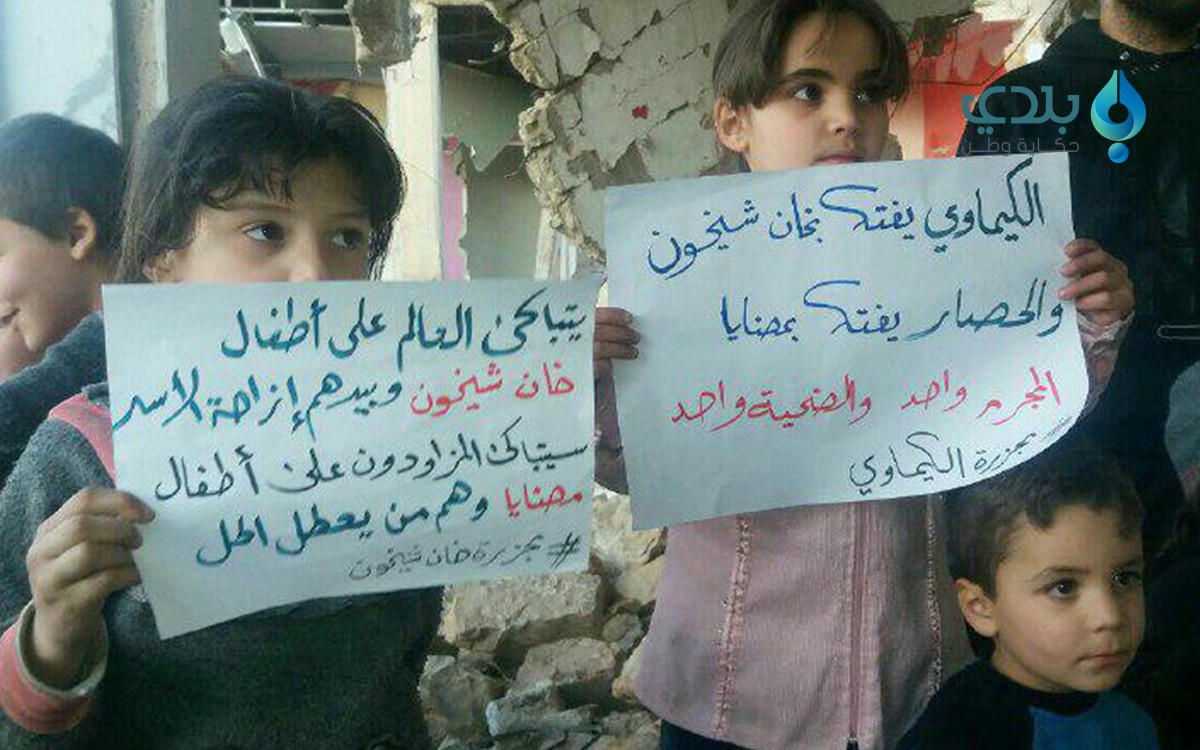 بلدي
حكاية وطن
الكيماوي يفتك بخان شيخون
والحصار يفتك بمضايا
المجرم واحد والضحية واحد
#بمجزرة الكيماوي
يتباكى العالم على أطفال
خان شيخون وبيدهم إزاحة الأسد
سيتباكى المزاودون على أطفال
مضايا وهم من يعطل الحل
#بمجزرة خان شيخون